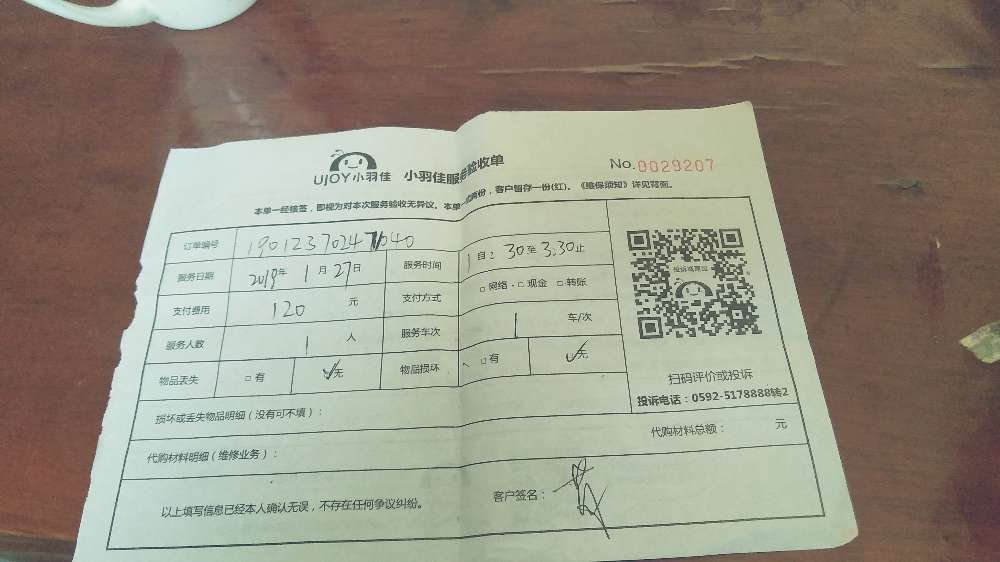 UJOY小羽佳 小羽佳服务验收单 No.0029207
本单一经核签，即视为对本次服务验收无异议。本单一式两份，客户暂存一份(红)。《维保须知》详见背面。
订单编号 190123702471040
服务日期 2019年 1月27日 服务时间 1自2:30至3.30止
支付费用 120 元 支付方式 □网络 □现金 □转账
服务人数 1 人 服务车次 1 车/次
物品丢失 □有 ✓无 物品损坏 □有 ✓无
扫码评价或投诉
投诉电话：0592-5178888转2
损坏或丢失物品明细（没有可不填）：
代购材料明细（维修业务）： 代购材料总额： 元
以上填写信息已经本人确认无误，不存在任何争议纠纷。 客户签名：